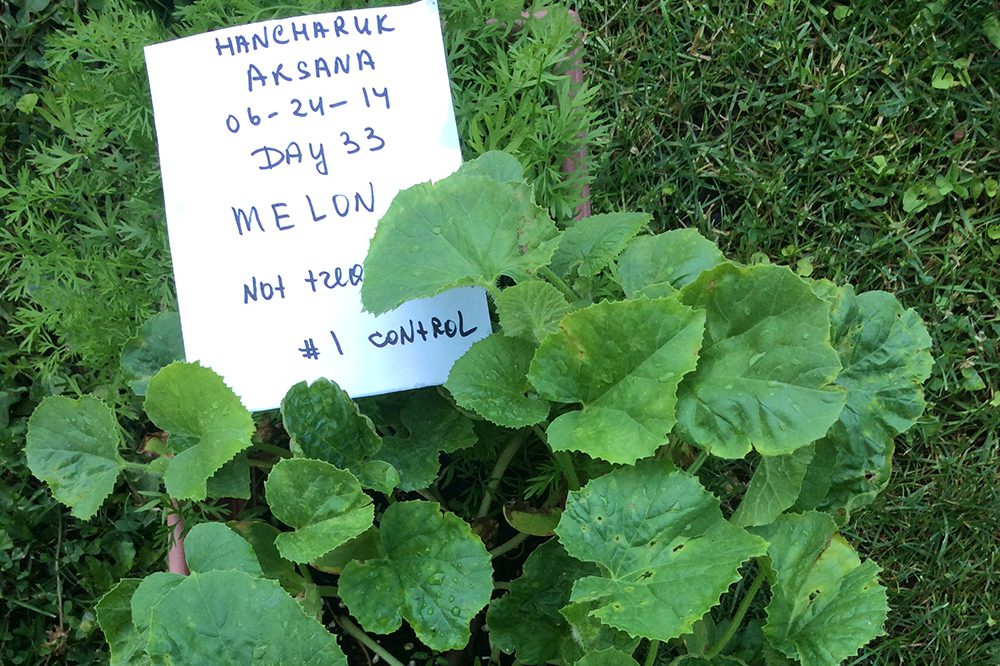 HANCHARUK
AKSANA
06-24-14
DAY 33
MELON
Not
#1 CONTROL